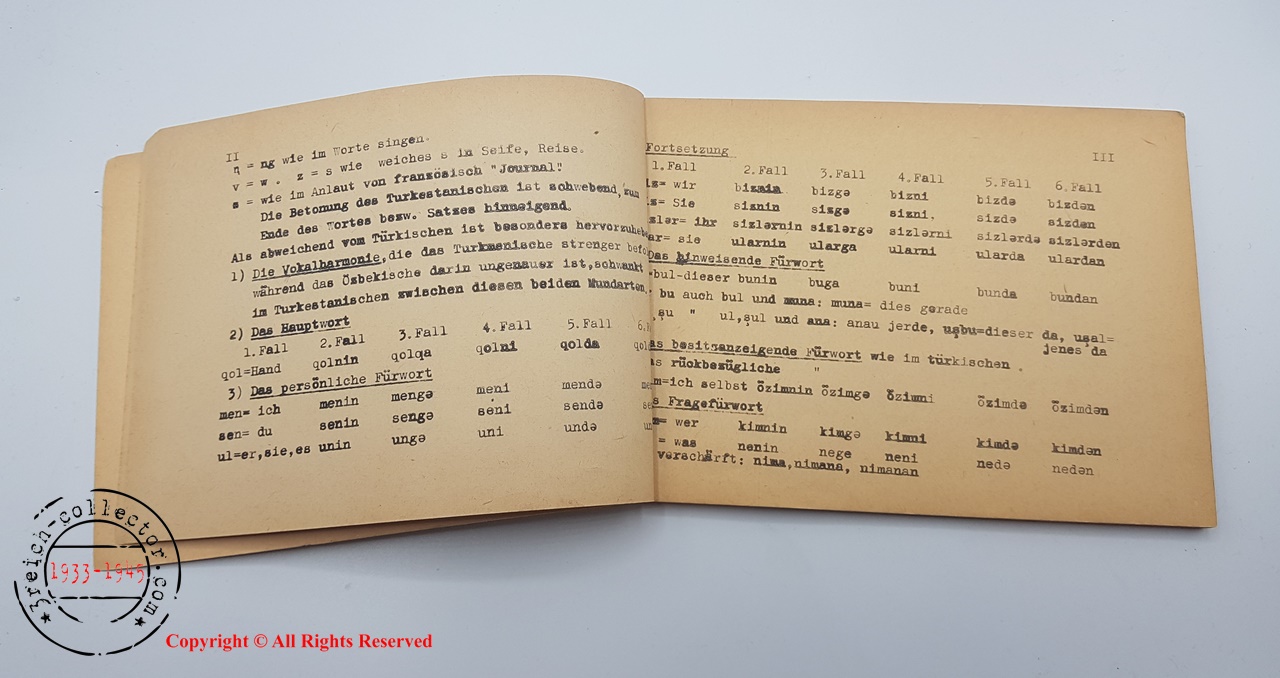 II
ƞ = ng wie im Worte singen.
v = w . z = s wie weiches s in Seife, Reise.
= wie im Anlaut von französisch "Journal"
Die Betonung des Turkestanischen ist schwebend, zum
Ende des Wortes bezw. Satzes hinneigend.
Als abweichend vom Türkischen ist besonders
1) Die Vokalharmonie, die das Turkmenische strenger
während das Özbekische darin ungenauer ist, schwankt
im Turkestanischen zwischen diesen beiden Mundarten.
2) Das Hauptwort
1.Fall 2.Fall 3.Fall 4.Fall 5.Fall
qol=Hand qolnin qolqa qolni qolda
3) Das persönliche Fürwort
men= ich menin mengə meni mendə
sen= du senin sengə seni sendə
ul=er,sie,es unin ungə uni undə
III
Fortsetzung
1.Fall 2.Fall 3.Fall 4.Fall 5.Fall 6.Fall
= wir biznin bizgə bizni bizdə bizdən
= Sie siznin sizgə sizni. sizdə sizden
= ihr sizlərnin sizlərgə sizlərni sizlərdə sizlərdən
= sie ularnin ularga ularni ularda ulardan
Das hinweisende Fürwort
bul-dieser bunin buga buni bunda bundan
bu auch bul und muna: muna= dies gerade
şu " ul,şul und ana: anau jerde, uşbu=dieser da, uşal=
jenes da
besitzanzeigende Fürwort wie im türkischen .
rückbezügliche "
=ich selbst özimnin özimgə özimni özimdə özimdən
Fragefürwort
= wer kimnin kimgə kimni kimdə kimdən
= was nenin nege neni nedə nedən
verschärft: nima,nimana, nimanan
3reich-collector.com
1933-1945
Copyright © All Rights Reserved